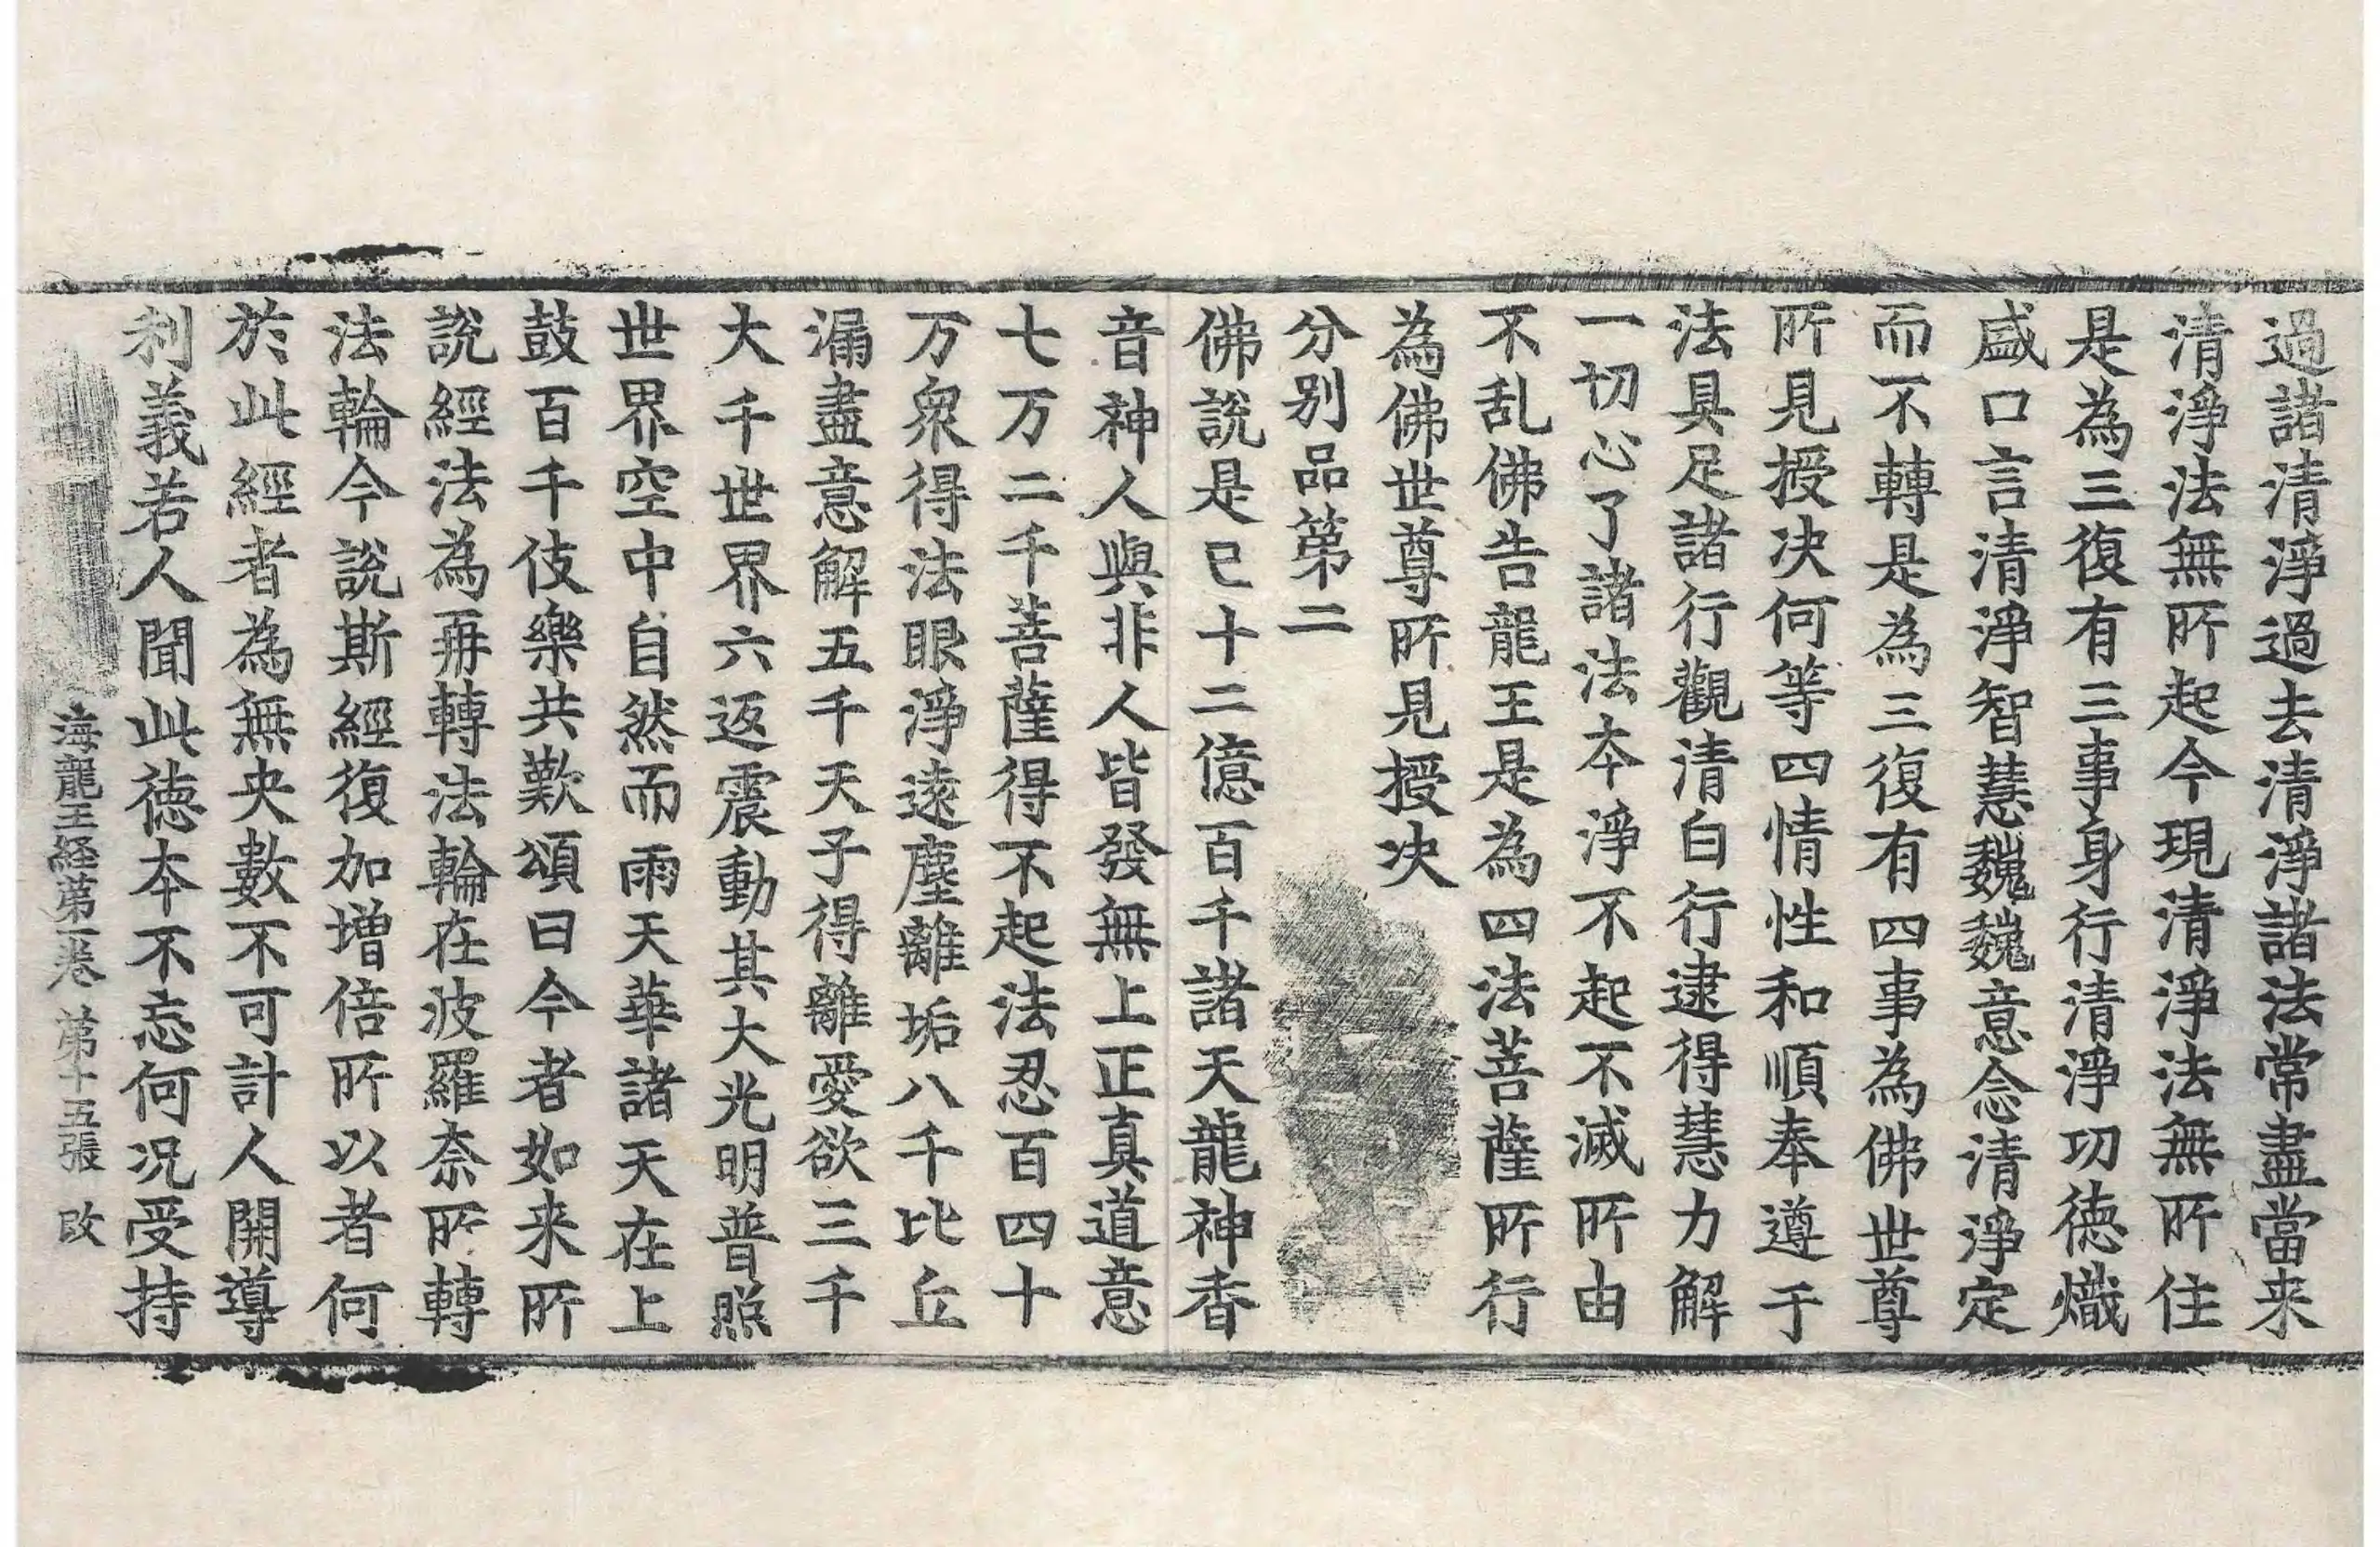 過諸清淨過去清淨諸法常盡當来
清淨法無所起今現清淨法無所住
是為三復有三事身行清淨功徳熾
盛口言清淨智慧巍巍意念清淨定
而不轉是為三復有四事為佛世尊
所見授决何等四情性和順奉遵于
法具足諸行觀清白行逮得慧力解
一切心了諸法本淨不起不滅所由
不乱佛告龍王是為四法菩薩所行
為佛世尊所見授决
分别品第二
佛說是已十二億百千諸天龍神香
音神人與非人皆發無上正真道意
七万二千菩薩得不起法忍百四十
万衆得法眼淨逺塵離垢八千比丘
漏盡意解五千天子得離愛欲三千
大千世界六返震動其大光明普照
世界空中自然而雨天華諸天在上
鼓百千伎樂共歎頌曰今者如来所
說經法為再轉法輪在波羅奈所轉
法輪今說斯經復加增倍所以者何
於此經者為無央數不可計人開導
利義若人聞此徳本不忘何況受持
海龍王経第一卷 第十五張 改